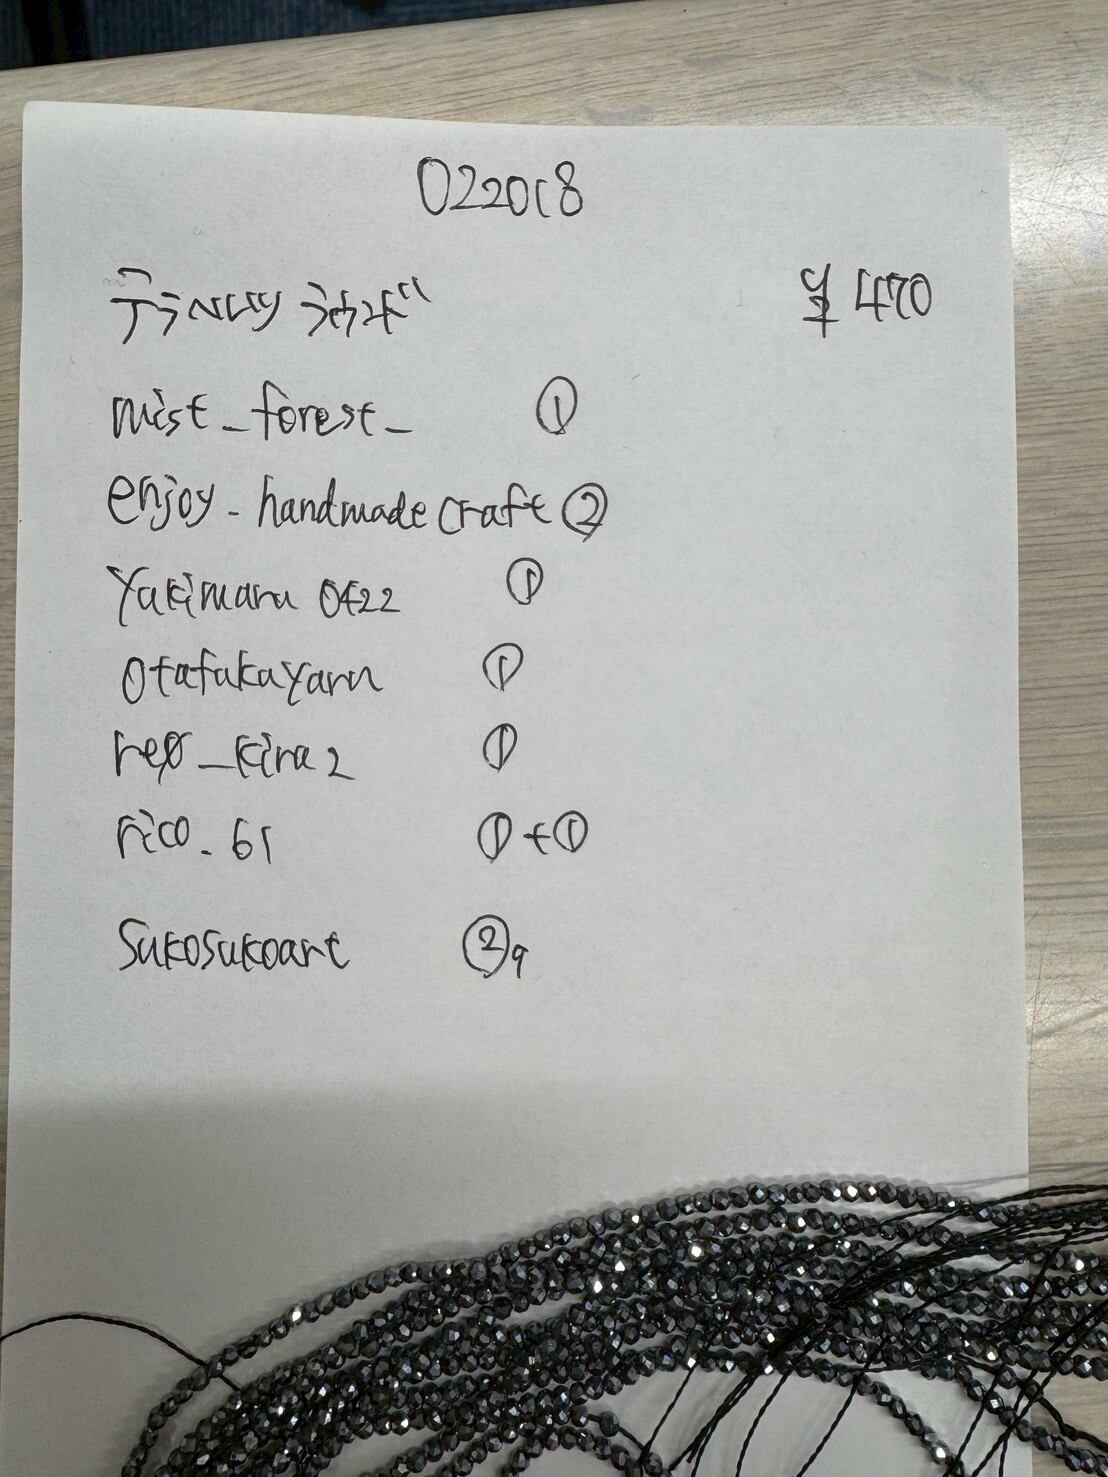 022018
テラヘルツ ラウンド ¥470
mist_forest_ ①
enjoy-handmade craft ②
Yukimaru 0422 ①
otafukuyarn ①
reo_kira2 ①
rico_61 ①+①
Sukosukoart ②9